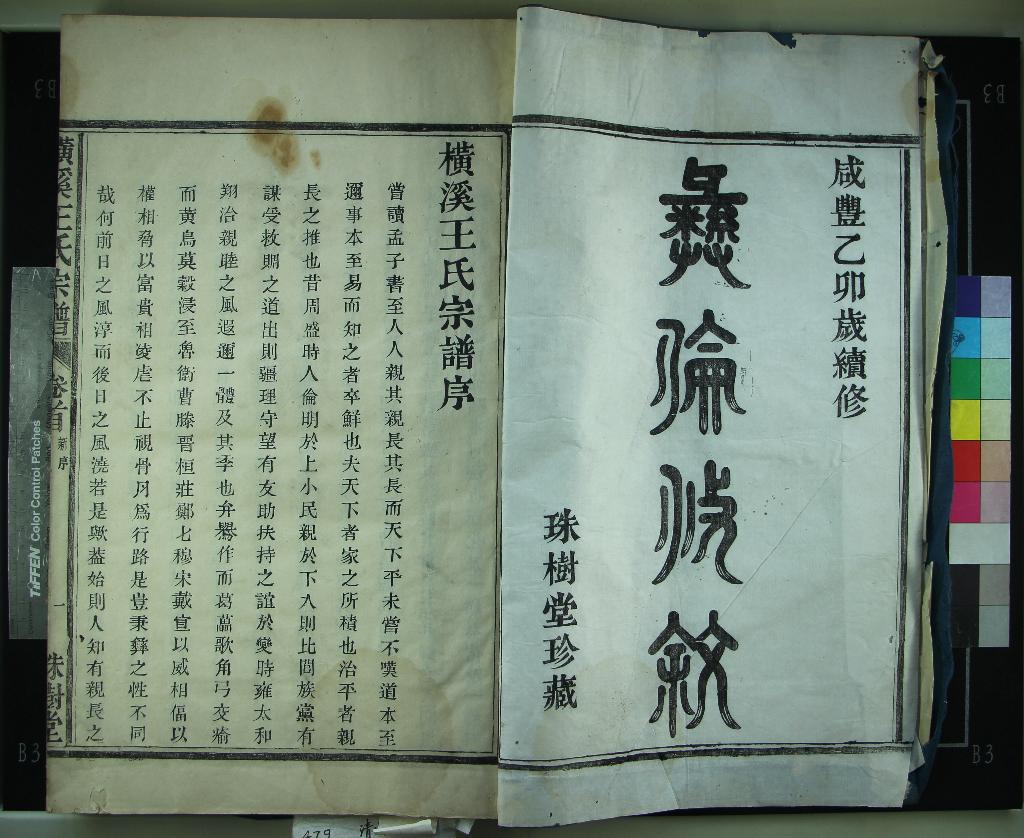 咸豐乙卯歲續修
彝倫攸敘
珠樹堂珍藏
橫溪王氏宗譜序
嘗讀孟子書至人人親其親長其長而天下平未嘗不嘆道本至
邇事本至易而知之者卒鮮也夫天下者家之所積也治平者親
長之推也昔周盛時人倫明於上小民親於下入則比閭族黨有
謀受救賙之道出則疆理守望有友助扶持之誼於變時雍太和
翔洽親睦之風遐邇一體及其季也弁鸒作而葛藟歌角弓交㾨
而黃鳥莫穀浸至魯衛曹滕晉桓莊鄭七穆宋戴宣以威相偪以
權相脅以富貴相凌虐不止視骨肉為行路是豈秉彝之性不同
哉何前日之風淳而後日之風澆若是歟葢始則人知有親長之
橫溪王氏宗譜
卷首
新序
一
珠樹堂
TIFFEN Color Control Patches
A
B3
B3
B3
B3
479 清